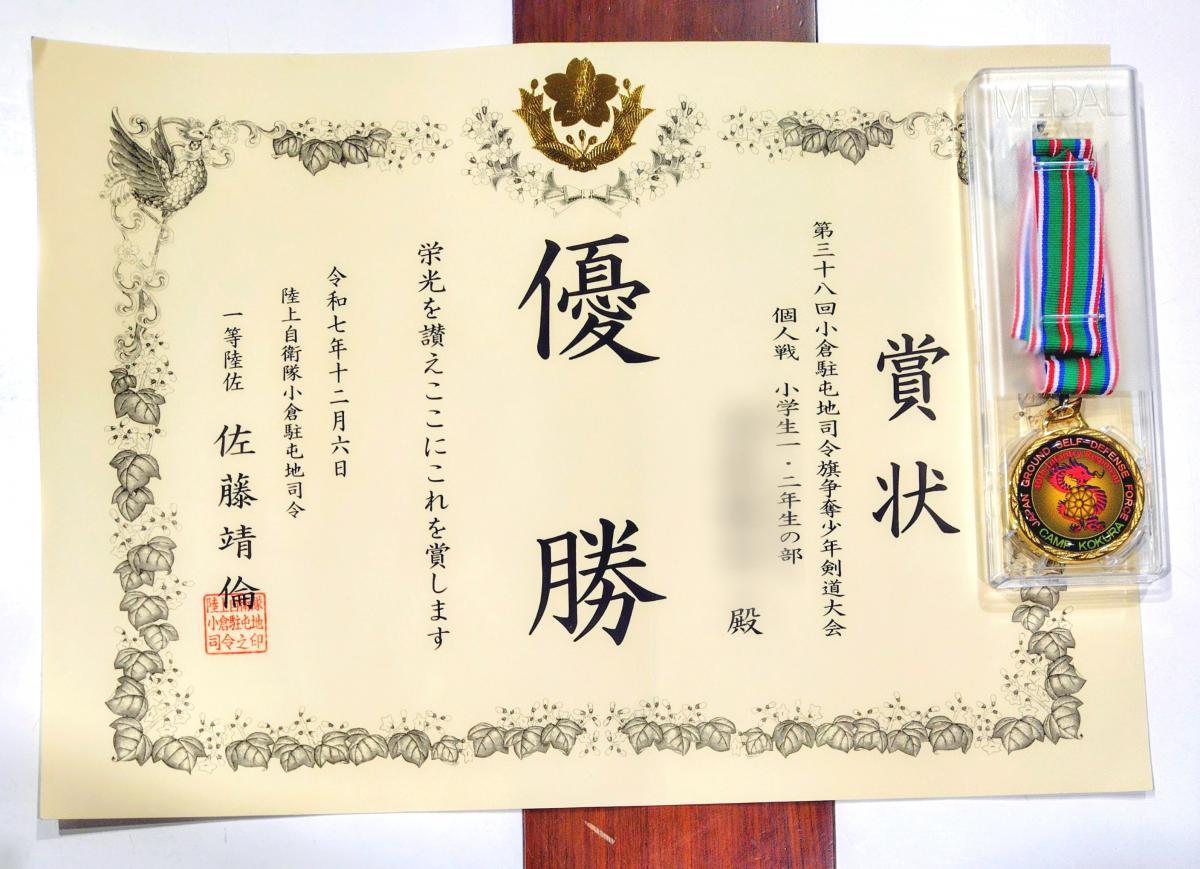 賞状
第三十八回小倉駐屯地司令旗争奪少年剣道大会
個人戦 小学生一・二年生の部
殿
優勝
栄光を讃えここにこれを賞します
令和七年十二月六日
陸上自衛隊小倉駐屯地司令
一等陸佐 佐藤靖倫
陸上自衛隊
小倉駐屯地
司令之印
MEDAL
JAPAN GROUND SELF-DEFENSE FORCE
40th Infantry Regiment
CAMP KOKURA